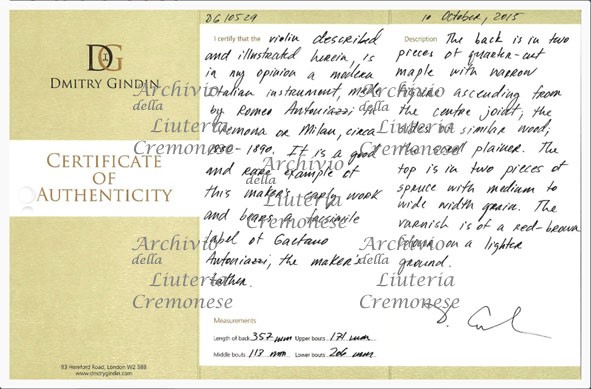 DG10529
10 October, 2015
DG
DMITRY GINDIN
CERTIFICATE
OF
AUTHENTICITY
93 Hereford Road, London W2 5BB
www.dmitrygindin.com
I certify that the violin described
and illustrated herein, is
in my opinion a modern
Italian instrument, made
by Romeo Antoniazzi in
Cremona or Milan, circa
1890. It is a good
and rare example of
this maker's early work
and bears a facsimile
label of Gaetano
Antoniazzi, the maker's
father.
Measurements
Length of back 357 mm Upper bouts 171 mm
Middle bouts 113 mm Lower bouts 206 mm
Description The back is in two
pieces of quarter-cut
maple with narrow
figure ascending from
the centre joint, the
sides of similar wood;
the scroll plainer. The
top is in two pieces of
spruce with medium to
wide width grain. The
varnish is of a red-brown
colour on a lighter
ground.
Archivio
della
Liuteria
Cremonese
Archivio
della
Liuteria
Cremonese
Archivio
della
Liuteria
Cremonese
Archivio
della
Liuteria
Cremonese
Archivio
della
Liuteria
Cremonese